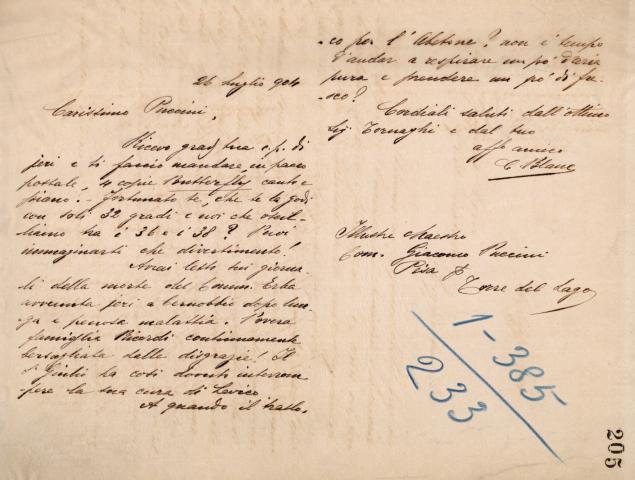 26 luglio 904
Carissimo Puccini,
Ricevo grad/ tua c.p. di
jeri e ti faccio mandare, in pacco
postale, 4 copie Butterfly canto e
piano. - Fortunato te, che te la godi
con soli 32 gradi e noi che oscil-
liamo tra i 36 e i 38? Puoi
immaginarti che divertimento!
Avrai letto sui giorna-
li della morte del Comm. Erba
avvenuta jeri a Cernobbio dopo lun-
ga e penosa malattia. Povera
famiglia Ricordi continuamente
bersagliata dalle disgrazie! Il
Sr Giulio ha così dovuto interrom
pere la sua cura di Levico.
A quando il traslo-
co per l'Abetone? non è tempo
d'andar a respirare un po' d'aria
pura e prendere un po' di fre-
sco?
Cordiali saluti dall'ottimo
Sig Tornaghi e dal tuo
aff amico
C Blanc
Illustre Maestro
Com. Giacomo Puccini
Pisa p
Torre del Lago
1-385
233
205